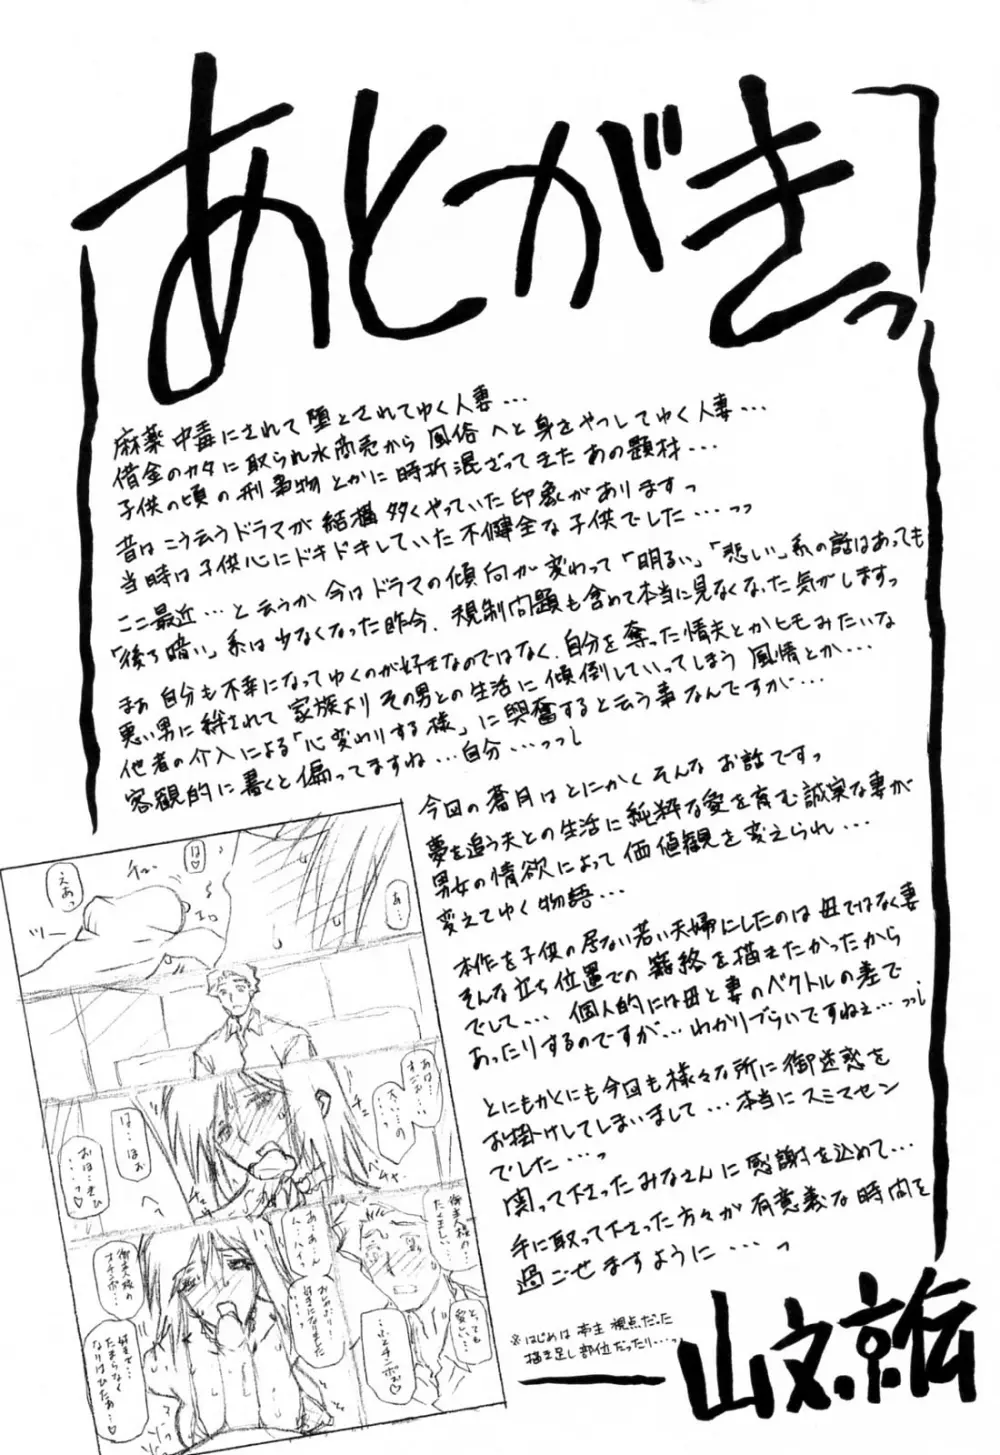 あとがきっ
麻薬中毒にされて堕とされてゆく人妻・・・
借金のカタに取られ水商売から風俗へと身をやつしてゆく人妻・・・
子供の頃の刑事物とかに時折混ざってきたあの題材・・・
昔はこう云うドラマが結構多くやっていた印象がありますっ
当時は子供心にドキドキしていた不健全な子供でした・・・っっ
ここ最近・・・と云うか今はドラマの傾向が変わって「明るい」「悲しい」系の話はあっても
「後ろ暗い」系は少なくなった昨今、規制問題も含めて本当に見なくなった気がしますっ
まぁ自分も不幸になってゆくのが好きなのではなく、自分を奪った情夫とかヒモみたいな
悪い男に絆されて家族よりその男との生活に傾倒していってしまう風情とか・・・
他者の介入による「心変わりする様」に興奮すると云う事なんですが・・・
客観的に書くと偏ってますね・・・自分・・・っっし
今回の蒼月はとにかくそんなお話ですっ
夢を追う夫との生活に純粋な愛を育む誠実な妻が
男女の情欲によって価値観を変えられ・・・
変えてゆく物語・・・
本作を子供の居ない若い夫婦にしたのは母ではなく妻
そんな立ち位置での籠絡を描きたかったから
でして・・・個人的には母と妻のベクトルの差で
あったりするのですが・・・わかりづらいですねぇ・・・っっし
とにもかくにも今回も様々な所に御迷惑を
お掛けしてしまいまして・・・本当にスミマセン
でした・・・っ
関って下さったみなさんに感謝を込めて・・・
手に取って下さった方々が有意義な時間を
過ごせますように・・・っ
※はじめは亭主視点だった
描き足し部位だったり・・・っ
山文京伝
は♡
えあっ
ツー
あ・・・